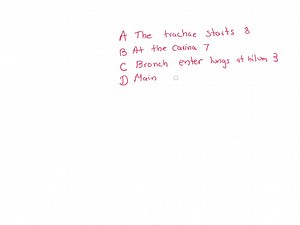 A The trachae starts 8
B At the Carina 7
C Bronch enter lungs at hilum 3
D Main